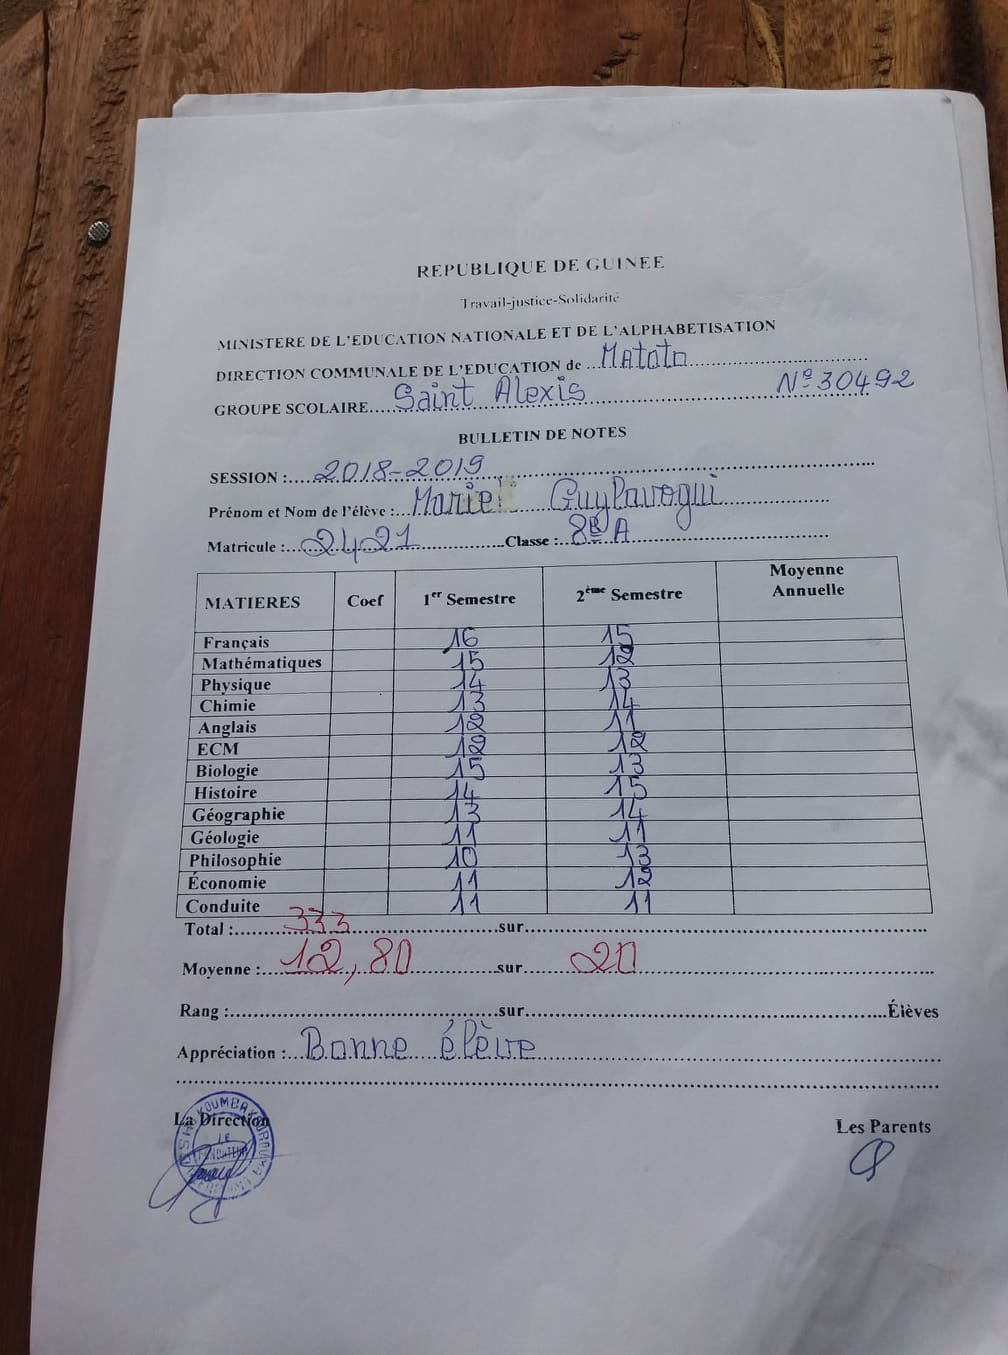 REPUBLIQUE DE GUINEE
Travail-justice-Solidarité
MINISTERE DE L'EDUCATION NATIONALE ET DE L'ALPHABETISATION
DIRECTION COMMUNALE DE L'EDUCATION de ... Matoto
GROUPE SCOLAIRE.... Saint Alexis N° 30492
BULLETIN DE NOTES
SESSION :.... 2018-2019
Prénom et Nom de l'élève :.. Marie Guy Pavogui
Matricule :.. 2421 Classe :.. 8è A
MATIERES Coef 1er Semestre 2ème Semestre Moyenne Annuelle
Français 16 15
Mathématiques 15 12
Physique 14 13
Chimie 13 14
Anglais 12 11
ECM 12 12
Biologie 15 13
Histoire 14 15
Géographie 13 14
Géologie 11 11
Philosophie 10 13
Économie 11 12
Conduite 11 11
Total :.... 333 sur
Moyenne :.. 12,80 sur 20
Rang : sur Élèves
Appréciation :.. Bonne élève
La Direction Les Parents
KOUMBA
LE FONDATEUR